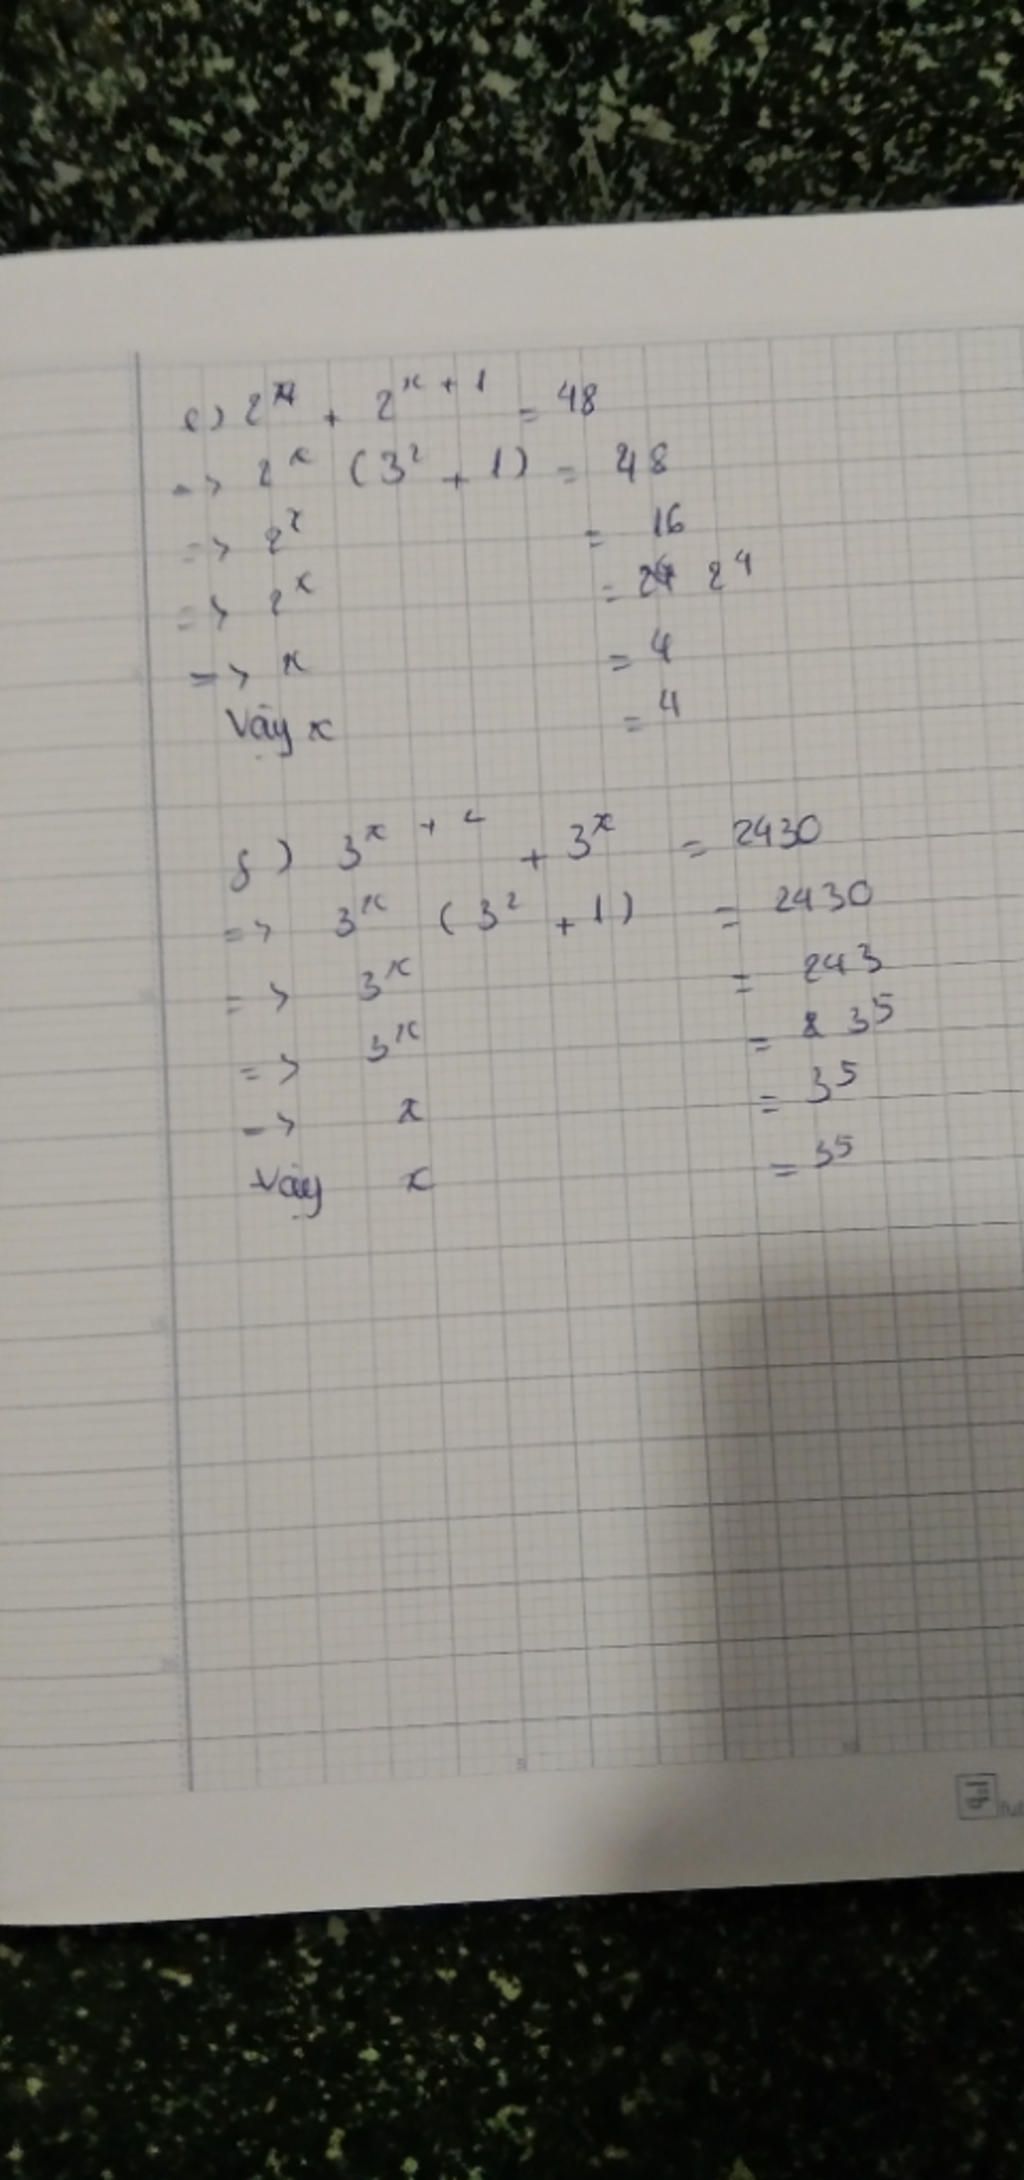 e) 2^x + 2^{x + 1} = 48
=> 2^x (3^2 + 1) = 48
=> 2^x = 16
=> 2^x = 2^4
=> x = 4
Vậy x = 4
f) 3^{x + 2} + 3^x = 2430
=> 3^x (3^2 + 1) = 2430
=> 3^x = 243
=> 3^x = 3^5
=> x = 3^5
Vậy x = 3^5